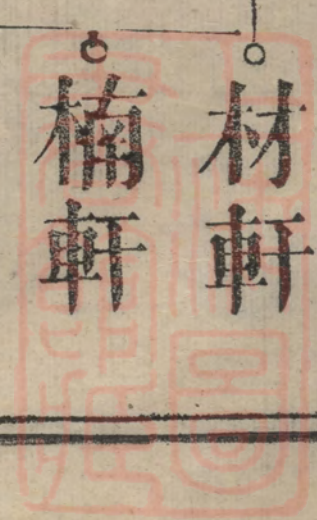 材軒
楠軒